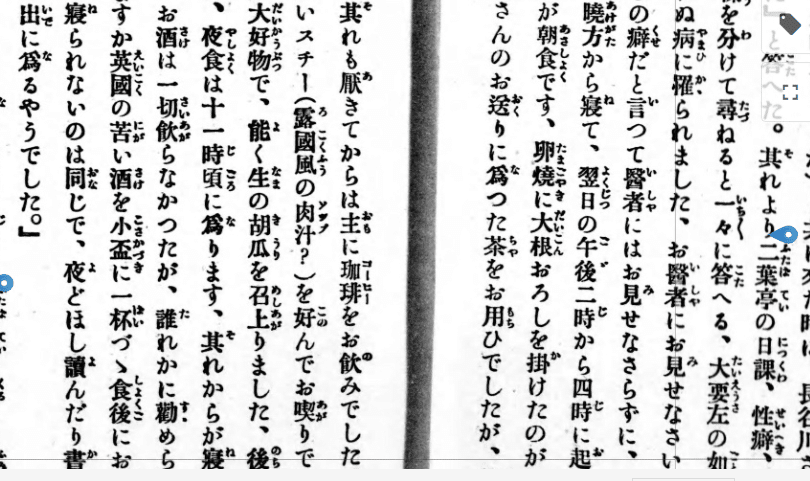 」と答へた。其れより二葉亭の日課、性癖、
を分けて尋ねると一々に答へる、大要左の如
ぬ病に罹られました、お醫者にお見せなさい
の癖だと言つて醫者にはお見せなさらずに、
曉方から寢て、翌日の午後二時から四時に起
が朝食です、卵燒に大根おろしを掛けたのが
さんのお送りに爲つた茶をお用ひでしたが、
其れも厭きてからは主に珈琲をお飮みでした
いスチー(露國風の肉汁?)を好んでお喫りで
大好物で、能く生の胡瓜を召上りました、後
、夜食は十一時頃に爲ります、其れからが寢
お酒は一切飮らなかつたが、誰れかに勸めら
すか英國の苦い酒を小盃に一杯づゝ食後にお
寢られないのは同じで、夜どほし讀んだり書
出に爲るやうでした。』